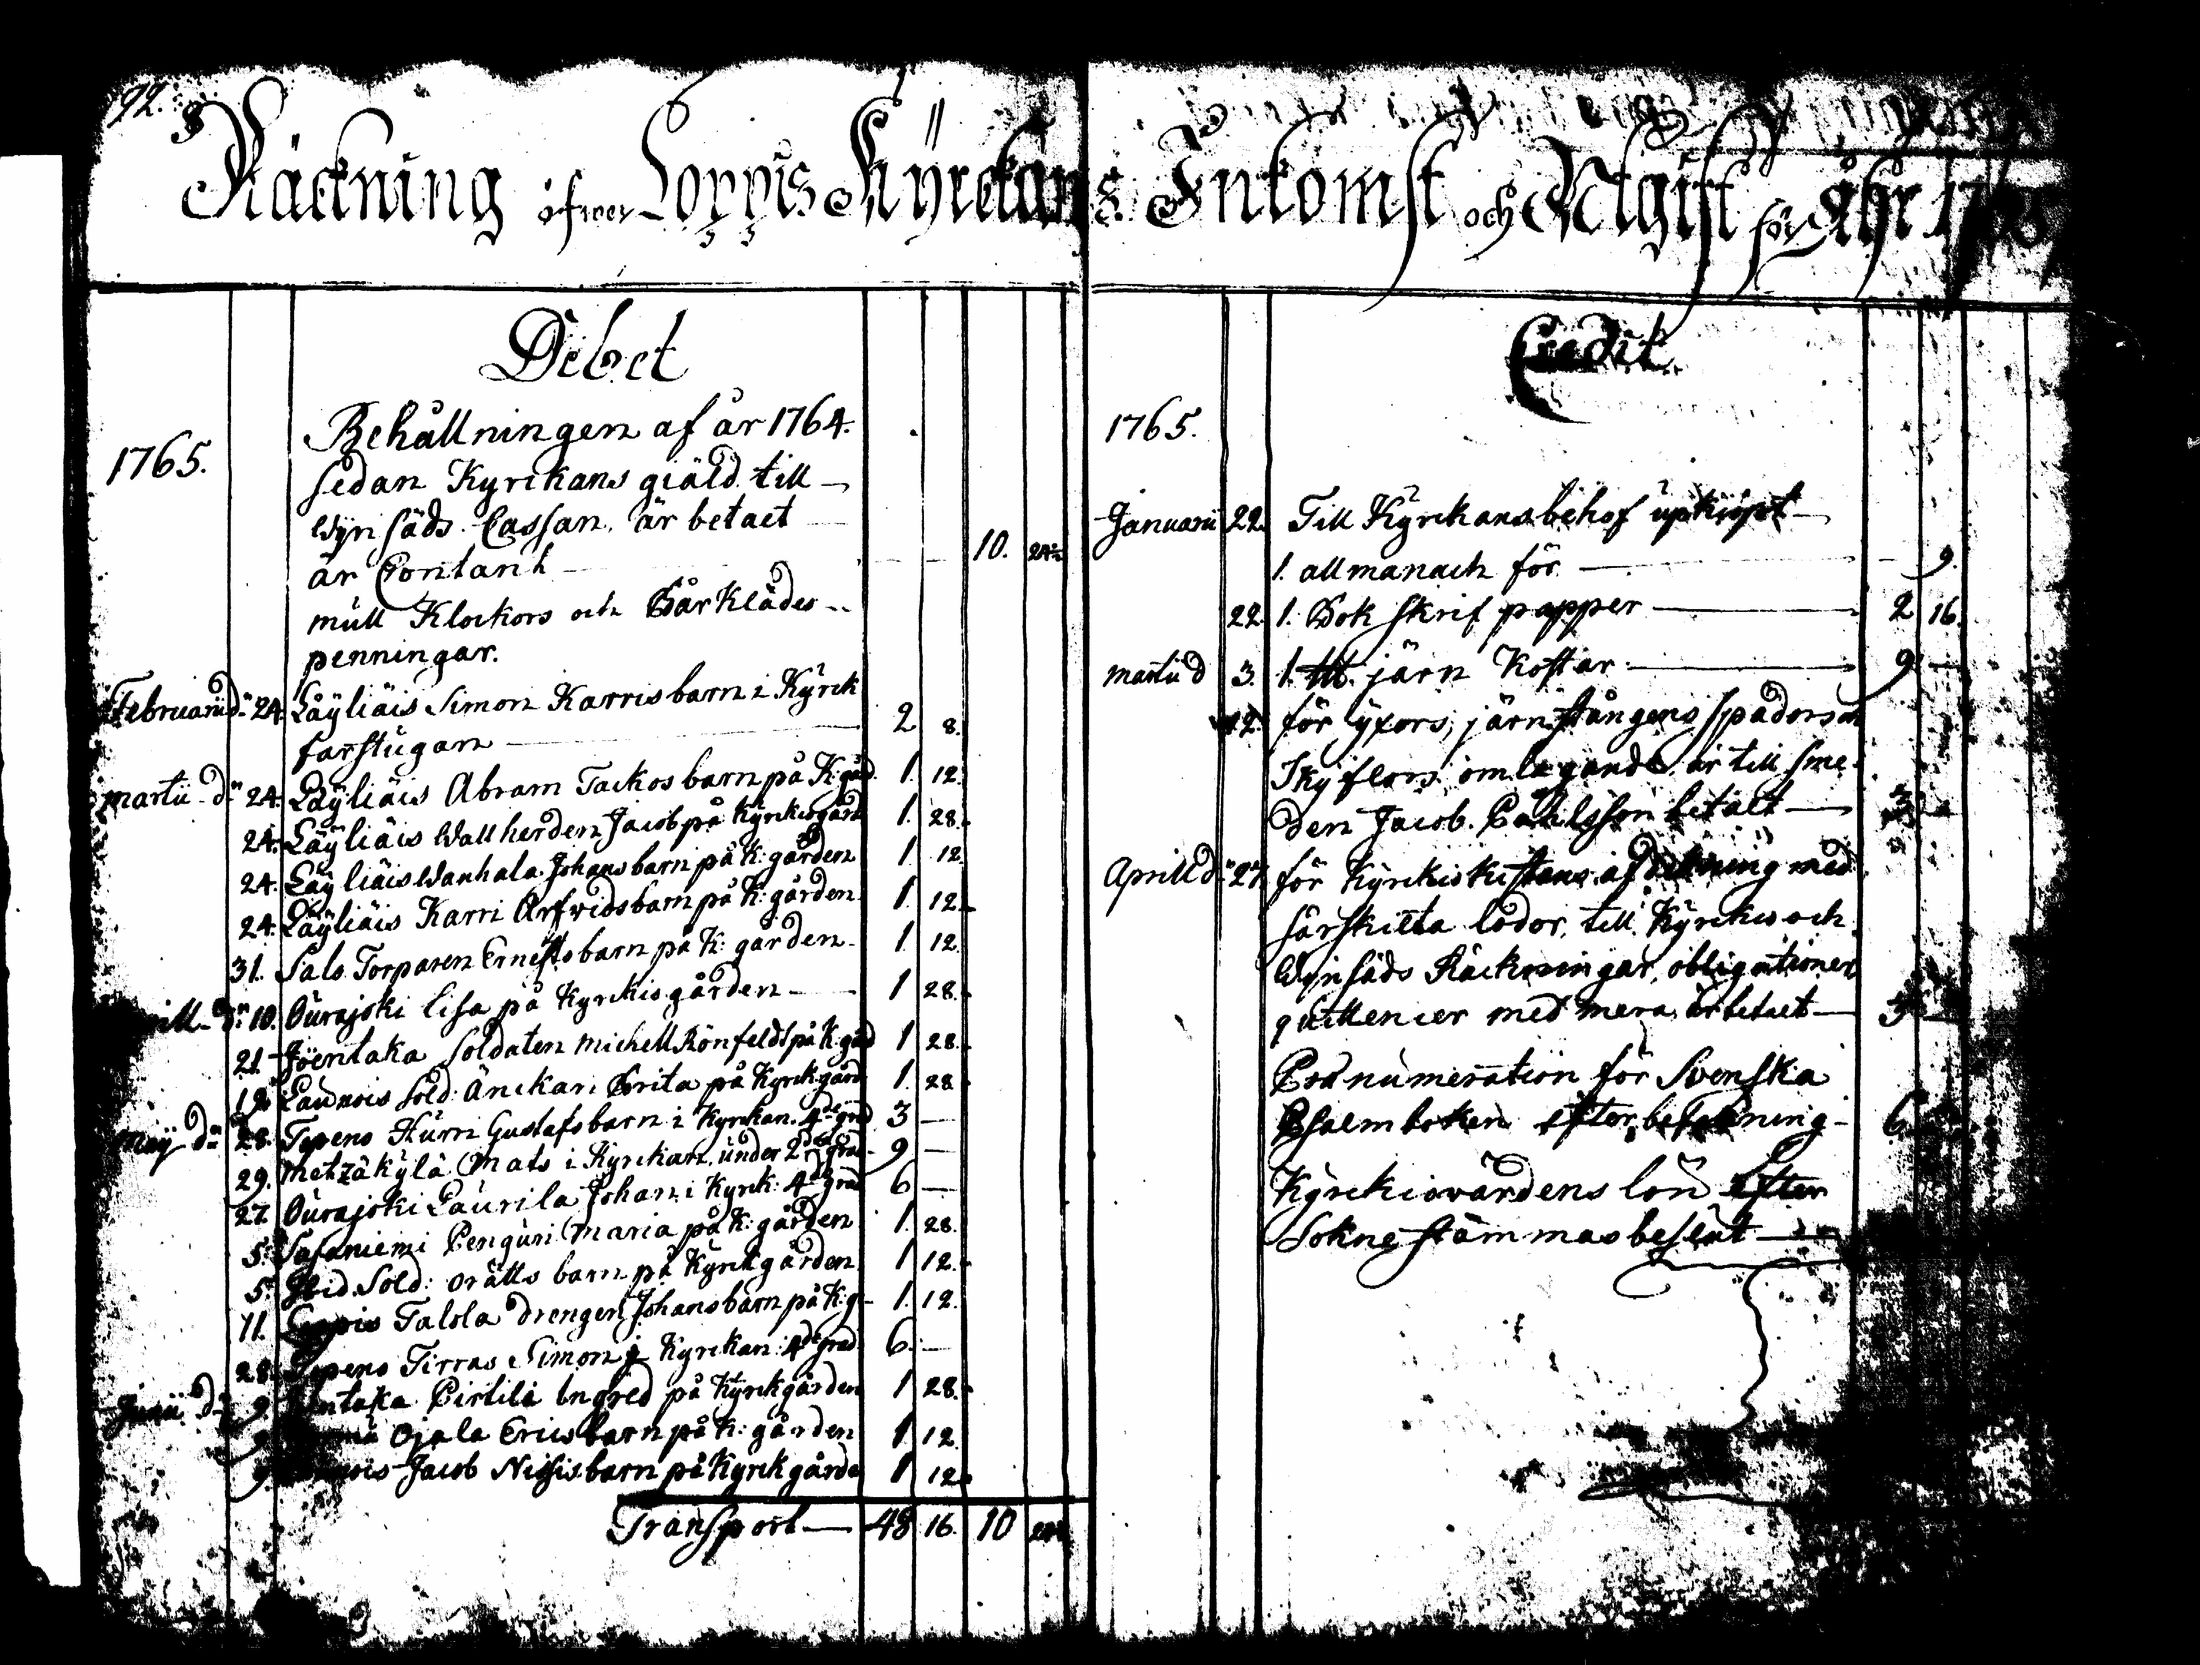 92.
Räckning öfwer Loppis Kÿrckans Inkomst och Utgift för Åhr 1765
Debet
1765.
Behållningen af år 1764.
sedan Kyrckans giäld till
Wijn säds Cassan, är betalt
är Contant 10. 24
mull Klockors och Bårklädes
penningar.
Februarii d: 24. Läÿliäis Simon Karris barn i Kÿrck
farstugan 2 8.
Martii d: 24. Läÿliäis Abram Tackos barn på K: gård. 1. 12.
24. Läÿliäis Wallherden Jacob på Kÿrckiogård 1. 28.
24. Läÿliäis Wanhala Johans barn på K: gården 1. 12.
24. Läÿliäis Karri Arfwids barn på K: gården 1. 12.
31. Salo Torparen Ernsts barn på K: gården 1. 12.
d: 10. Ourajoki Lisa på Kyrckiogården 1 28.
21. Joentaka Soldaten Michell Rönfeldt på K: gård 1 28.
Launois Sold: Änckan Brita på Kyrckgård 1. 28
Maÿ d: 28. Topeno Hurri Gustafs barn i Kyrckan. 4de grad 3
29. Metzäkÿlä Mats i Kyrckan under 2dra grad 9
27. Ourajoki Laurila Johan i Kyrck: 4de grad 6
5. Sajaniemi Penguri Maria på K: gården 1. 28.
5. Ibid. Sold: Orätts barn på Kyrckgården 1 12.
11. Loppis Talola drengen Johans barn på K: g 1. 12.
28. Topeno Tirras Simon i Kyrckan: 4de grad 6.
Junii d: 9. Pirtilä Ingred på Kÿrckgården 1 28.
9. Ojala Erics barn på K: gården 1 12.
9. Jacob Nissis barn på Kyrckgården 1 12.
Transport 48 16. 10
Credit
1765.
Januarii 22. Till Kÿrckans behof upkiöpt
1. allmanach för 9.
22. 1. Bok skrif papper 2 16.
Martii d 3. 1. järn Kostar 9
12. för ÿxors, järn stångens spadors och
skÿflors omlagande, är till sme
den Jacob Pahlsson betalt 3
Aprill d: 27. för Kÿrckiokistans afdelning med
särskilta lådor, till Kÿrckio och
Wijnsäds Räckningar, obligationer
quittencier med mera, är betalt 3
Prænumeration för Svenska
Psalmboken efter befallning 6
Kÿrckiovärdens lön efter
Sokne stämmas beslut